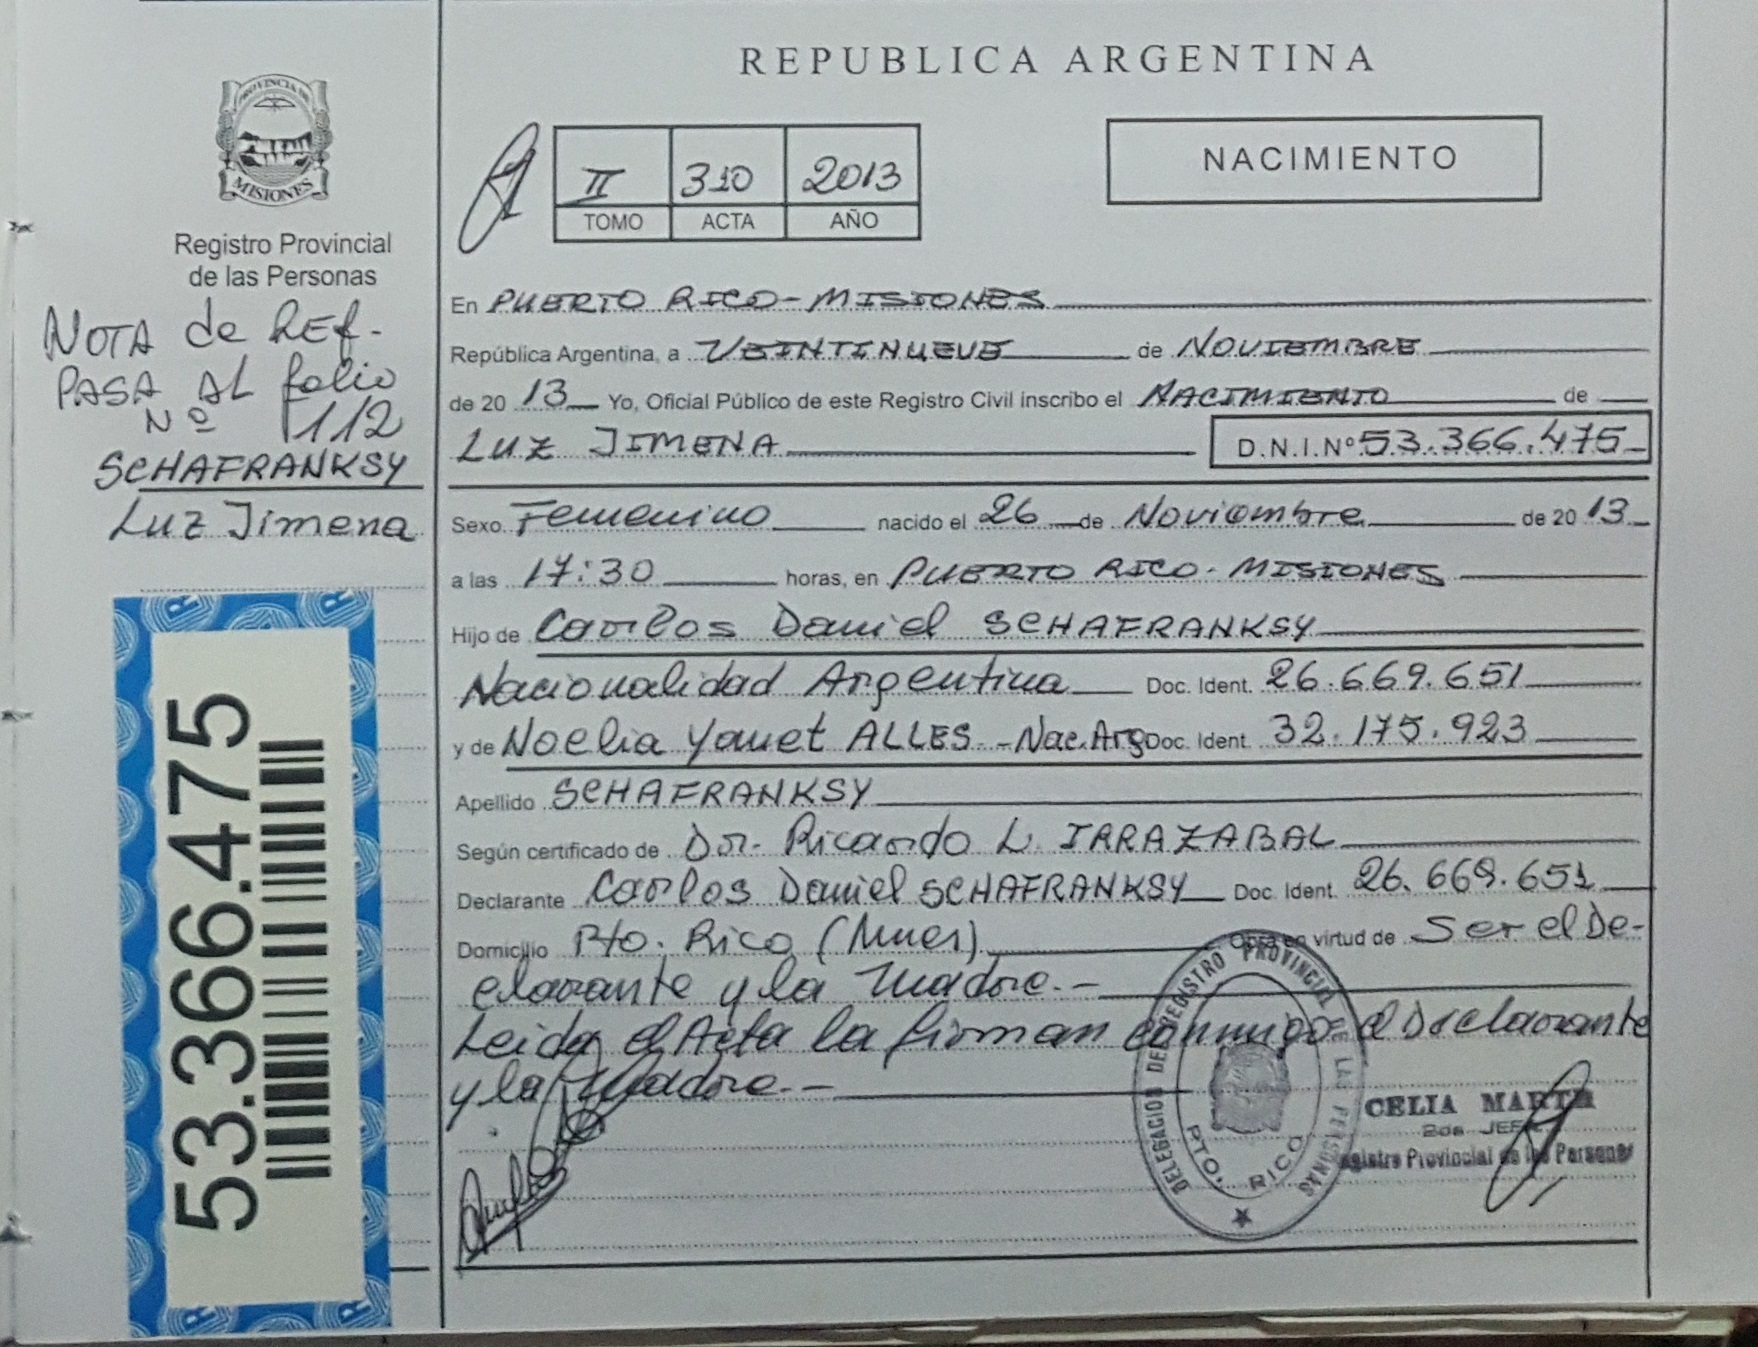 PROVINCIA DE
MISIONES
Registro Provincial
de las Personas
NOTA de REF-
PASA AL folio
Nº 112
SCHAFRANKSY
Luz Jimena
53.366.475
REPUBLICA ARGENTINA
II 310 2013
TOMO ACTA AÑO
NACIMIENTO
En PUERTO RICO-MISIONES
República Argentina, a VEINTINUEVE de NOVIEMBRE
de 20 13 Yo, Oficial Público de este Registro Civil inscribo el NACIMIENTO de
LUZ JIMENA D.N.I.Nº 53.366.475
Sexo Femenino nacido el 26 de Noviembre de 20 13
a las 17:30 horas, en PUERTO RICO-MISIONES
Hijo de Carlos Daniel SCHAFRANKSY
Nacionalidad Argentina Doc. Ident. 26.669.651
y de Noelia Yanet ALLES.-Nac.Arg Doc. Ident. 32.175.923
Apellido SCHAFRANKSY
Según certificado de Dr. Ricardo L. IRRAZABAL
Declarante Carlos Daniel SCHAFRANKSY Doc. Ident. 26.669.651
Domicilio Pto. Rico (Mnes). Obra en virtud de Ser el De-
clarante y la madre.-
Leida el Acta la firman conmigo el Declarante
y la Madre.-
DELEGACION DEL REGISTRO PROVINCIAL DE LAS PERSONAS
PTO. RICO
CELIA MARTA
2da JEFA
Registro Provincial de las Personas